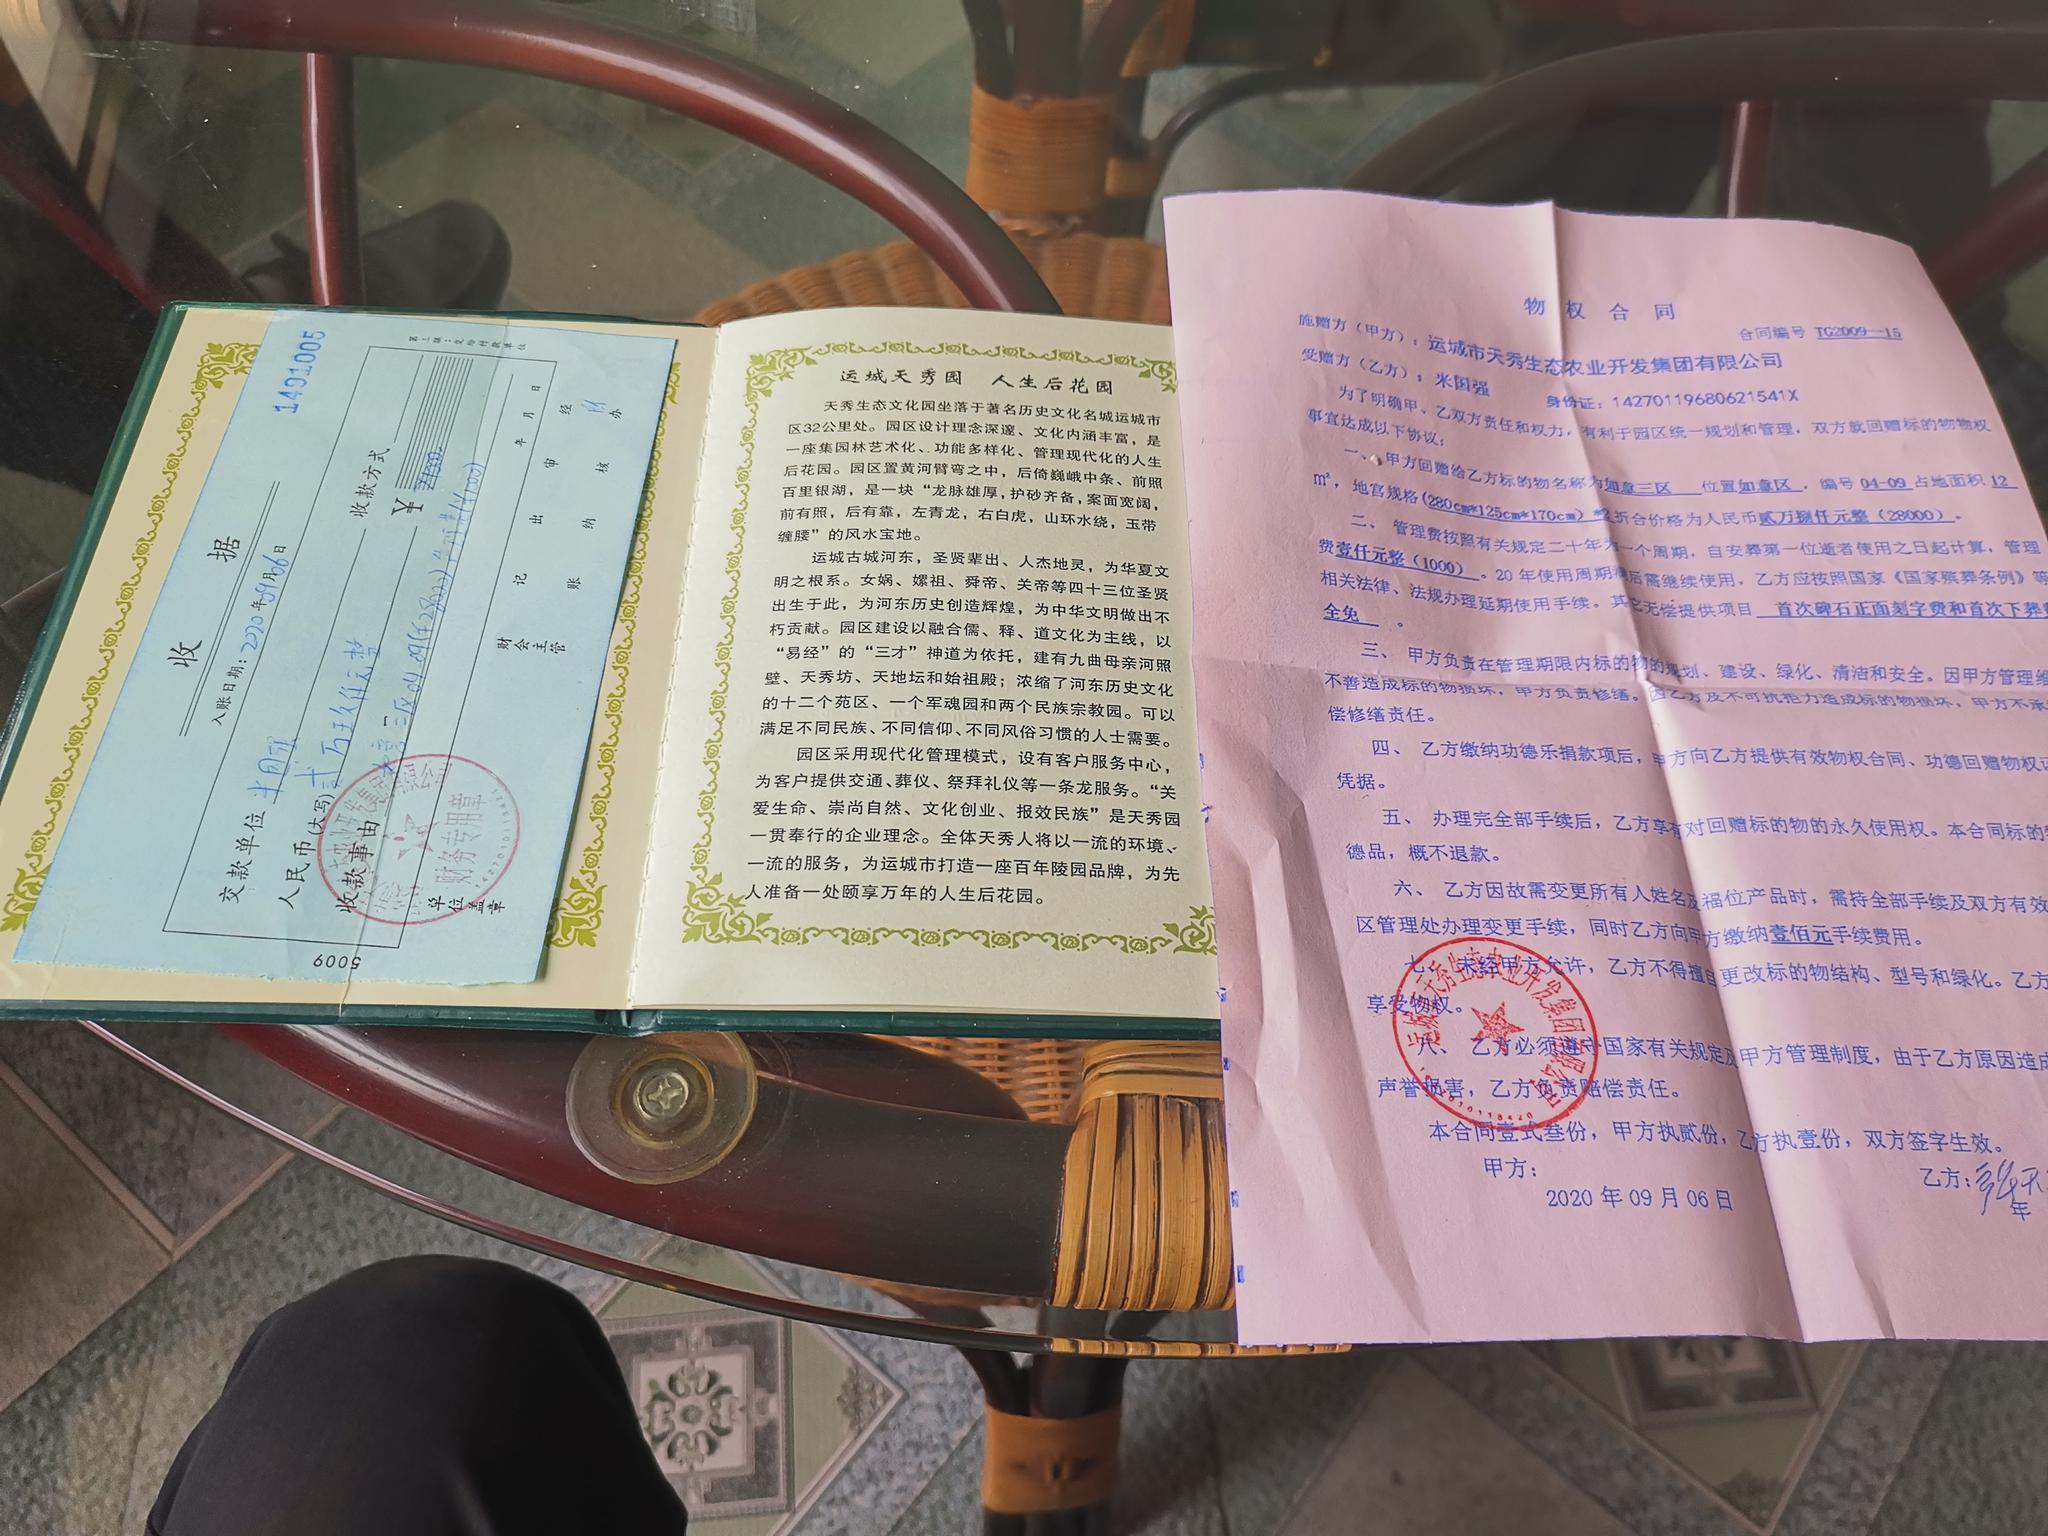 1491005
第三联：交给付款单位
收 据
入账日期：2020年09月06日
交款单位
收款方式
人民币(大写)
￥
收款事由
年 月 日
单位盖章
财会主管
记账
出纳
审核
经办
财务专用章
5009
运城天秀园 人生后花园
天秀生态文化园坐落于著名历史文化名城运城市
区32公里处。园区设计理念深邃、文化内涵丰富，是
一座集园林艺术化、功能多样化、管理现代化的人生
后花园。园区置黄河臂弯之中，后倚巍峨中条、前照
百里银湖，是一块“龙脉雄厚，护砂齐备，案面宽阔，
前有照，后有靠，左青龙，右白虎，山环水绕，玉带
缠腰”的风水宝地。
运城古城河东，圣贤辈出、人杰地灵，为华夏文
明之根系。女娲、嫘祖、舜帝、关帝等四十三位圣贤
出生于此，为河东历史创造辉煌，为中华文明做出不
朽贡献。园区建设以融合儒、释、道文化为主线，以
“易经”的“三才”神道为依托，建有九曲母亲河照
壁、天秀坊、天地坛和始祖殿；浓缩了河东历史文化
的十二个苑区、一个军魂园和两个民族宗教园。可以
满足不同民族、不同信仰、不同风俗习惯的人士需要。
园区采用现代化管理模式，设有客户服务中心，
为客户提供交通、葬仪、祭拜礼仪等一条龙服务。“关
爱生命、崇尚自然、文化创业、报效民族”是天秀园
一贯奉行的企业理念。全体天秀人将以一流的环境、
一流的服务，为运城市打造一座百年陵园品牌，为先
人准备一处颐享万年的人生后花园。
物 权 合 同
合同编号 TG2009—15
施赠方（甲方）：运城市天秀生态农业开发集团有限公司
受赠方（乙方）：米国强 身份证：14270119680621541X
为了明确甲、乙双方责任和权力，有利于园区统一规划和管理，双方就回赠标的物物权
事宜达成以下协议：
一、甲方回赠给乙方标的物名称为如意三区 位置如意区，编号 04-09 占地面积 12
㎡，地宫规格(280cm*125cm*170cm) *2折合价格为人民币贰万捌仟元整（28000）。
二、管理费按照有关规定二十年为一个周期，自安葬第一位逝者使用之日起计算，管理
费壹仟元整（1000）。20年使用周期满后需继续使用，乙方应按照国家《国家殡葬条例》等
相关法律、法规办理延期使用手续。其它无偿提供项目 首次碑石正面刻字费和首次下葬
全免 。
三、甲方负责在管理期限内标的物的规划、建设、绿化、清洁和安全。因甲方管理维
不善造成标的物损坏，甲方负责修缮。因乙方及不可抗拒力造成标的物损坏，甲方不承
偿修缮责任。
四、乙方缴纳功德乐捐款项后，甲方向乙方提供有效物权合同、功德回赠物权证
凭据。
五、办理完全部手续后，乙方享有对回赠标的物的永久使用权。本合同标的
德品，概不退款。
六、乙方因故需变更所有人姓名及福位产品时，需持全部手续及双方有效
区管理处办理变更手续，同时乙方向甲方缴纳壹佰元手续费用。
七、未经甲方允许，乙方不得擅自更改标的物结构、型号和绿化。乙方
享受物权。
八、乙方必须遵守国家有关规定及甲方管理制度，由于乙方原因造成
声誉损害，乙方负责赔偿责任。
本合同壹式叁份，甲方执贰份，乙方执壹份，双方签字生效。
甲方：
乙方：
2020 年 09 月 06 日
年
运城市天秀生态农业开发集团有限公司